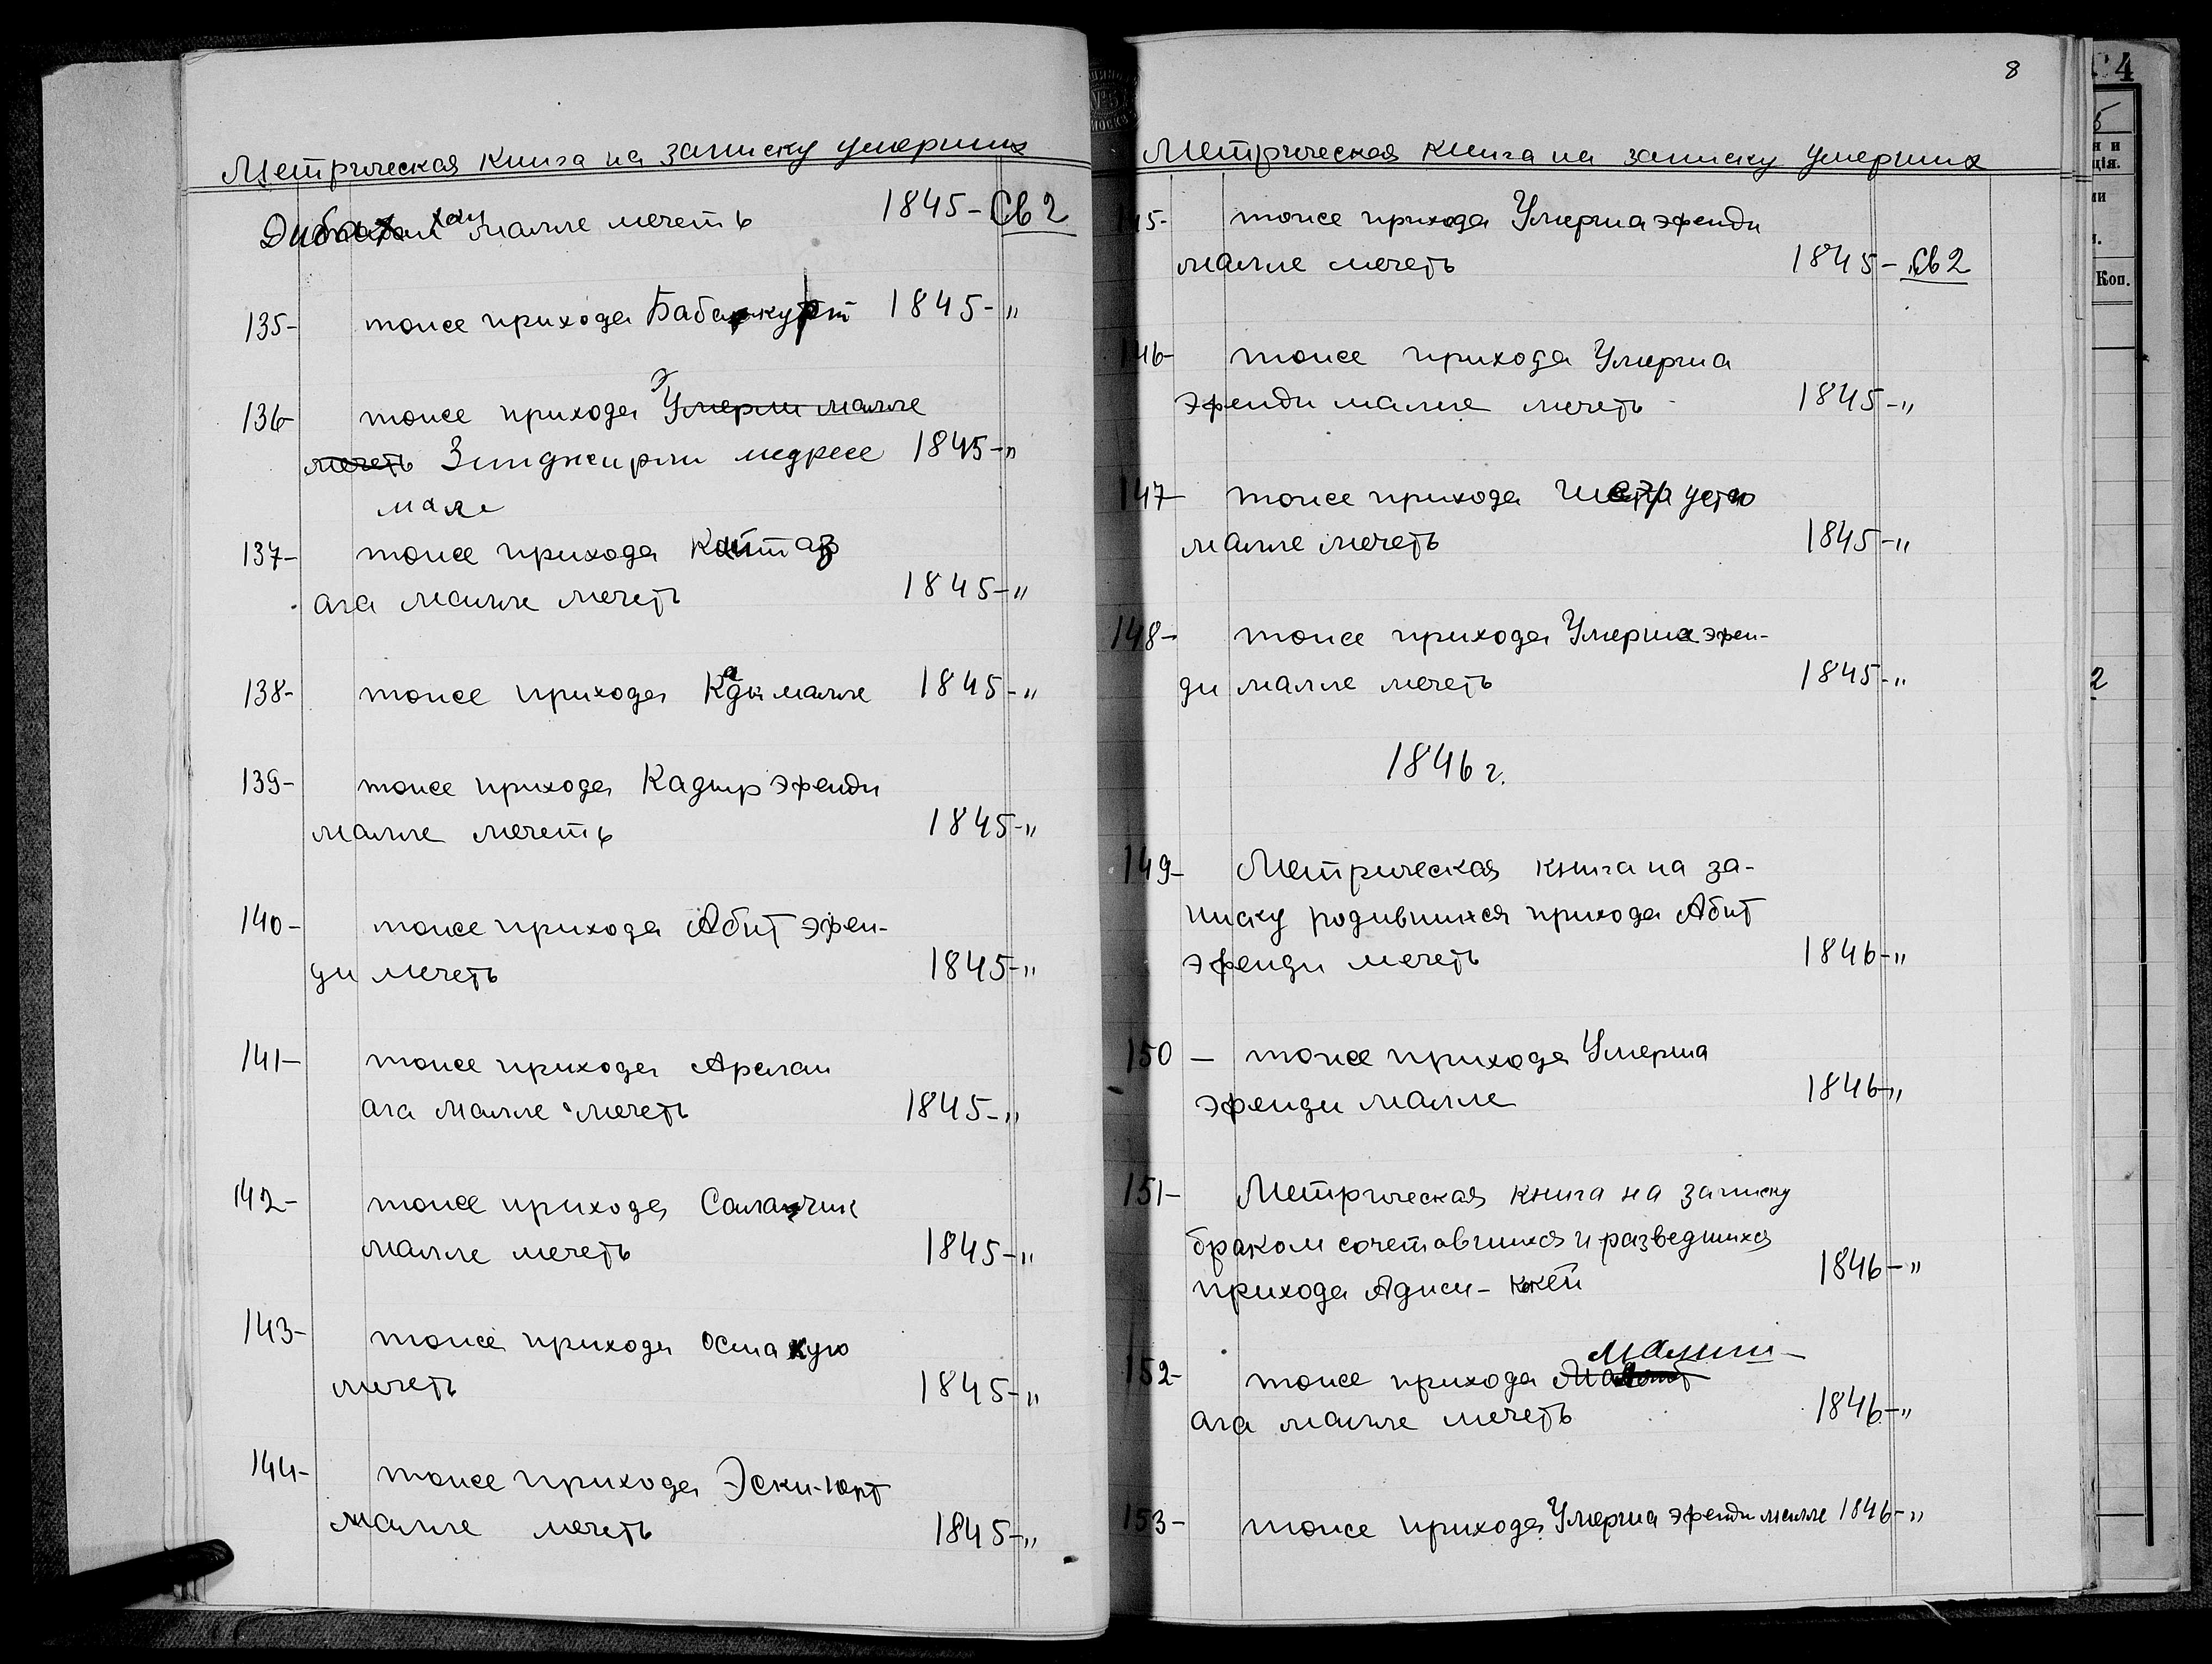 Метрическая книга на записку умерших
хан малле мечеть 1845-Св 2
135- тоже прихода 1845-"
136- тоже прихода Умерли малле
мечеть Зинджирли медресе 1845-"
мале
137- тоже прихода
ага малле мечеть 1845-"
138- тоже прихода Кады малле 1845-"
139- тоже прихода Кадыр эфенди
малле мечеть 1845-"
140- тоже прихода Абит эфен-
ди мечеть 1845-"
141- тоже прихода Арслан
ага малле мечеть 1845-"
142- тоже прихода Салачик
малле мечеть 1845-"
143- тоже прихода
мечеть 1845-"
144- тоже прихода Эски-юрт
малле мечеть 1845-"
8
Метрическая книга на записку умерших
145- тоже прихода Умерша эфенди
малле мечеть 1845-Св 2
146- тоже прихода Умерша
эфенди малле мечеть 1845-"
147- тоже прихода
малле мечеть 1845-"
148- тоже прихода Умерша эфен-
ди малле мечеть 1845-"
1846 г.
149- Метрическая книга на за-
писку родившихся прихода Абит
эфенди мечеть 1846-"
150 - тоже прихода Умерша
эфенди малле 1846-"
151- Метрическая книга на записку
браком сочетавшихся и разведшихся
прихода 1846-"
152- тоже прихода
ага малле мечеть 1846-"
153- тоже прихода Умерша эфенди малле 1846-"
4
Коп.
2